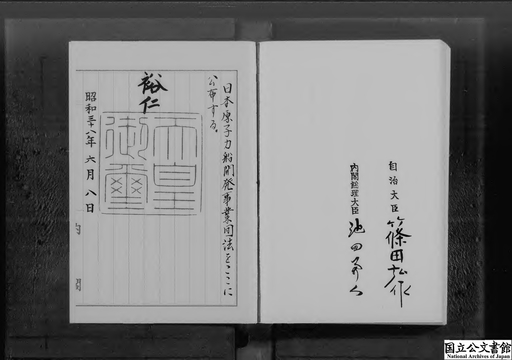 自治大臣 篠田弘作
内閣総理大臣 池田勇人
日本原子力船開発事業団法をここに
公布する。
裕仁
天皇
御璽
昭和三十八年六月八日
内
閣
国立公文書館
National Archives of Japan